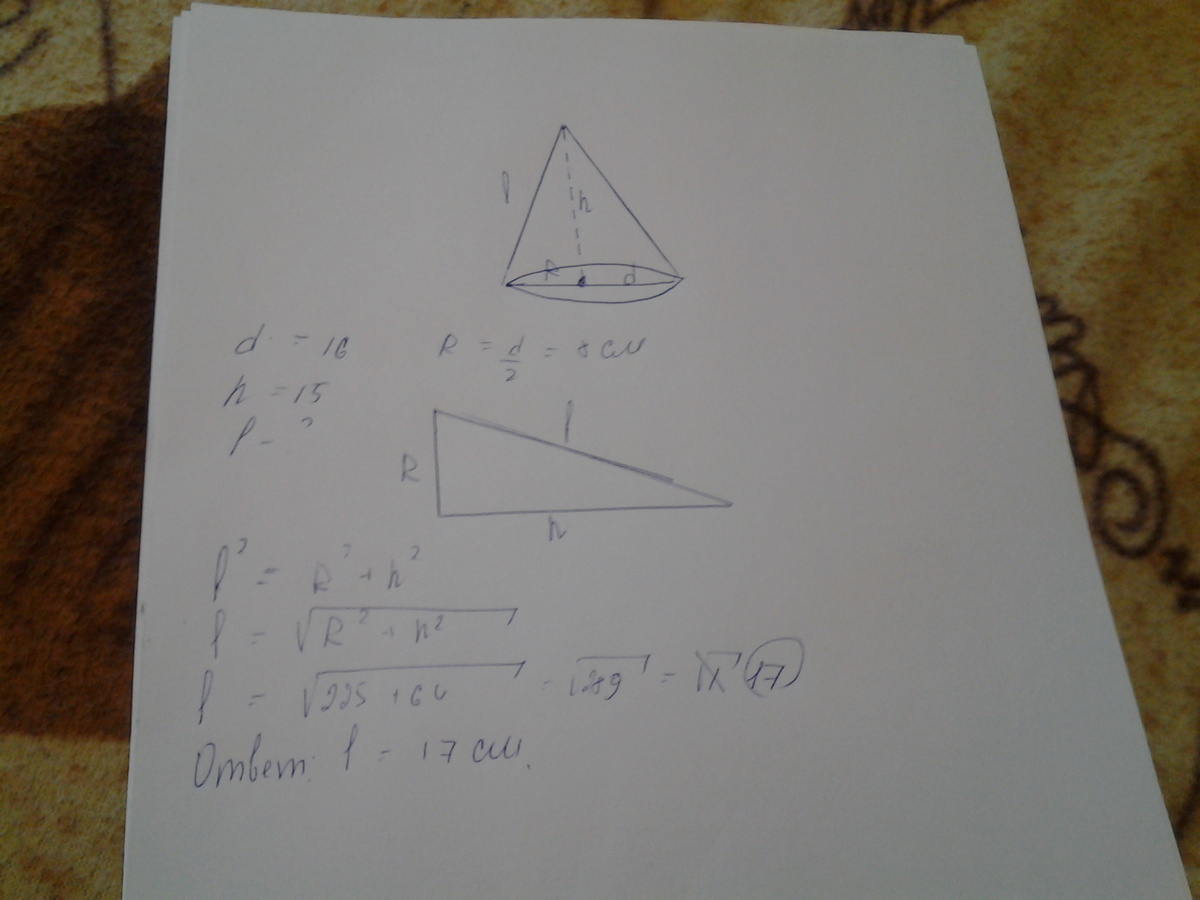 l
h
R d
d = 16 R = d/2 = 8 см
h = 15
l - ?
l
R
h
l² = R² + h²
l = √(R² + h²)
l = √(225 + 64) = √289 = 17
Ответ: l = 17 см.